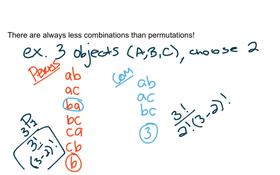 There are always less combinations than permutations!
ex. 3 objects (A,B,C), choose 2
Perms
ab
ac
ba
bc
ca
cb
6
Com
ab
ac
bc
3
3!
2!(3-2)!
3P2
3!
(3-2)!